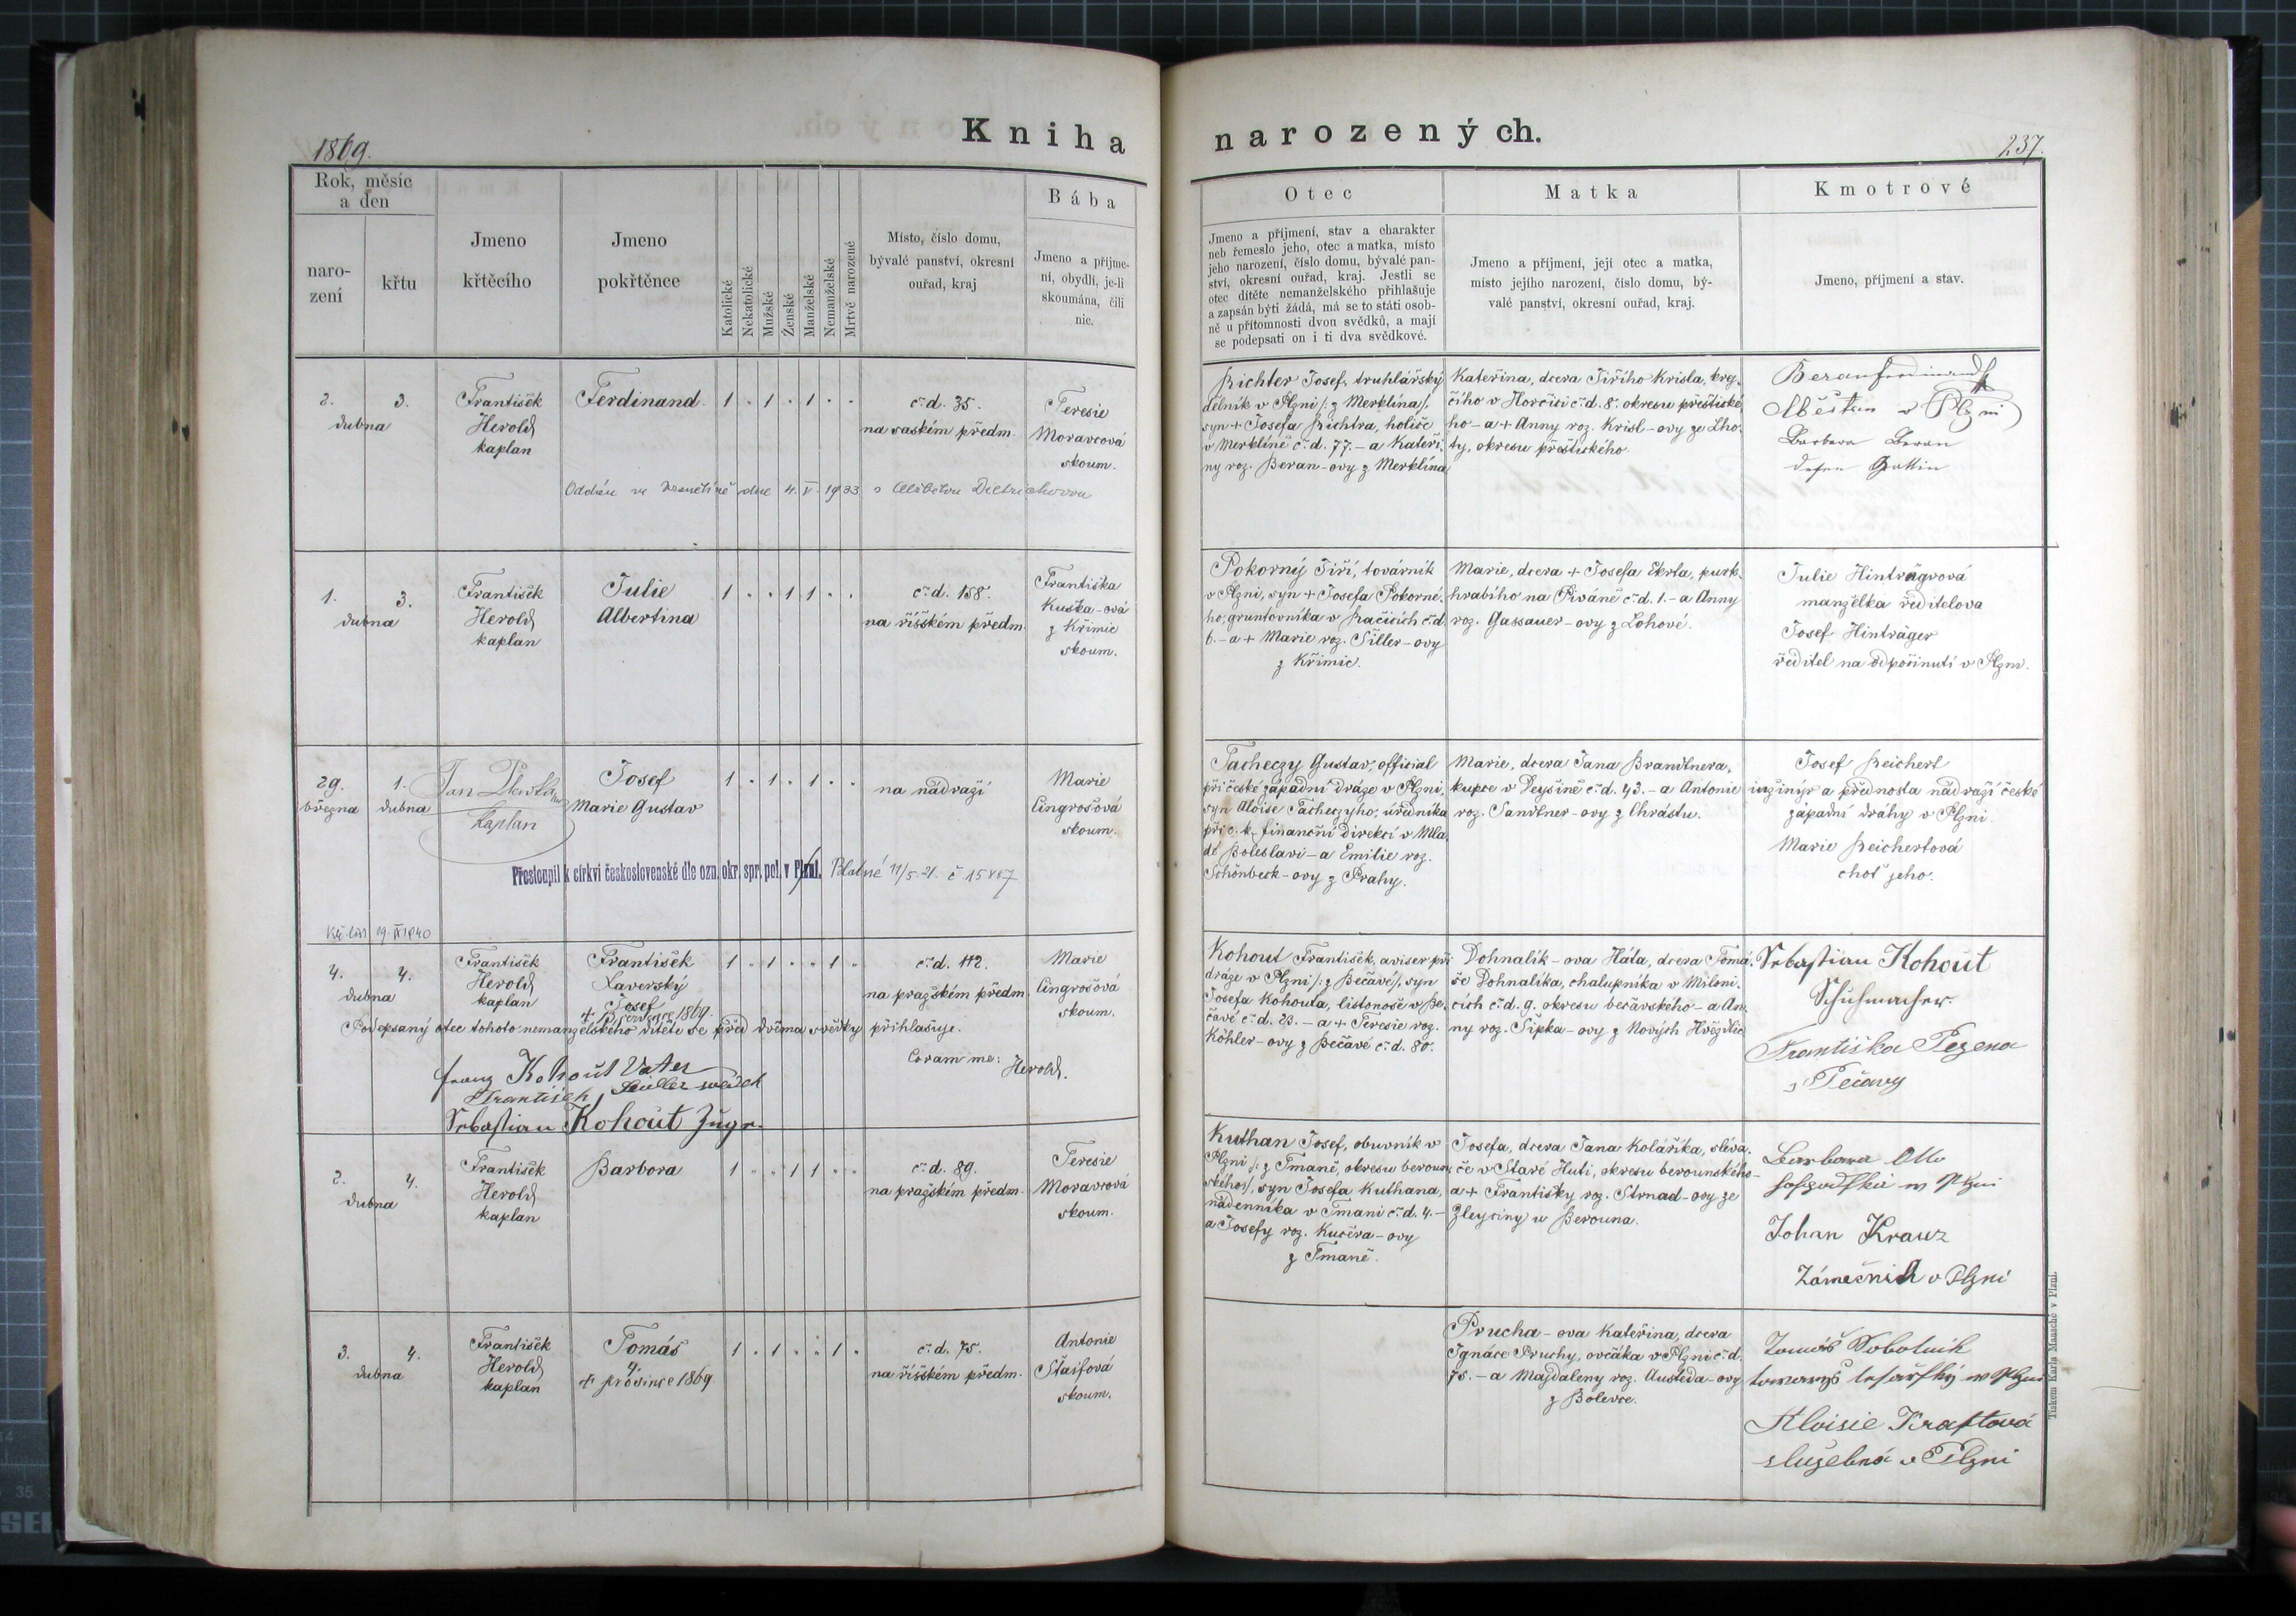 1869.
Kniha
narozených.
237.
Rok, měsíc
a den
naro-
zení
křtu
Jmeno
křtěcího
Jmeno
pokřtěnce
Katolické
Nekatolické
Mužské
Ženské
Manželské
Nemanželské
Mrtvě narozené
Místo, číslo domu,
bývalé panství, okresní
ouřad, kraj
Bába
Jmeno a příjme-
ní, obydlí, je-li
skoumána, čili
nie.
Otec
Jmeno a příjmení, stav a charakter
neb řemeslo jeho, otec a matka, místo
jeho narození, číslo domu, bývalé pan-
ství, okresní ouřad, kraj. Jestli se
otec dítěte nemanželského přihlašuje
a zapsán býti žádá, má se to státi osob-
ně u přítomnosti dvou svědků, a mají
se podepsati on i ti dva svědkové.
Matka
Jmeno a příjmení, její otec a matka,
místo jejího narození, číslo domu, bý-
valé panství, okresní ouřad, kraj.
Kmotrové
Jmeno, příjmení a stav.
2. 3.
dubna
František
Herold
kaplan
Ferdinand.
1 . 1 . 1 . .
č. d. 35.
na saském předm.
Teresie
Moravcová
skoum.
Oddán ve dne 4. V. 1933 s Alžbětou Dietrichovou
Richter Josef, truhlářský
dělník v Plzni /: z Merklína /:
syn + Josefa Richtra, holiče
v Merklíně č. d. 77. - a Kateři-
ny roz. Beran-ovy z Merklína
Kateřina, dcera Jiřího Krisla, krej-
čího v Horčisi č. d. 8. okresu přeštické-
ho - a + Anny roz. Krisl-ovy ze Lho-
ty, okresu přeštického.
Beran Ferdinand
Měšťan v Plzni
Barbara Beran
dessen Gattin
1. 3.
dubna
František
Herold
kaplan
Julie
Albertina
1 . . 1 1 . .
č. d. 158.
na říšském předm.
Františka
Kuška-ová
z Křimic
skoum.
Pokorný Jiří, továrník
v Plzni, syn + Josefa Pokorné-
ho, gruntovníka v Račicích č. d.
6. - a + Marie roz. Šiller-ovy
z Křimic.
Marie, dcera + Josefa Ekrla, purk-
hrabího na Pivaně č. d. 1. - a Anny
roz. Gassauer-ovy z Lohové.
Julie Hinträgrová
manželka ředitelova
Josef Hinträger
ředitel na odpočinutí v Plzni.
29. 1.
března dubna
Jan
kaplan
Josef
Marie Gustav
1 . 1 . 1 . .
na nádraží
Marie
Cingrošová
skoum.
Přestoupil k církvi československé dle ozn. okr. spr. pol. v Plzni. Blatné 11/5. 21. č 15887
Tacheczy Gustav, official
při české západní dráze v Plzni,
syn Aloise Tacheczyho, úředníka
při c. k. finanční direkcí v Mla-
dé Boleslavi - a Emilie roz.
Schönbeck-ovy z Prahy.
Marie, dcera Jana Brandtnera,
kupce v Dejšině č. d. 43. - a Antonie
roz. Sandtner-ovy z Chrástu.
Josef Reichert
inžinýr a přednosta nádraží české
západní dráhy v Plzni.
Marie Reichertová
choť jeho.
4. 4.
dubna
František
Herold
kaplan
František
Xaverský
Josef
+ 13 1869.
1 . 1 . . 1 .
č. d. 112.
na pražském předm.
Marie
Cingrošová
skoum.
Podepsaný otec tohoto nemanželského dítěte se před dvěma svědky přihlašuje.
Coram me: Herold.
Franz Kohout Vater
František svědek
Sebastian Kohout Zeuge.
Kohout František, aviser při
dráze v Plzni /: z Bečavé /, syn
Josefa Kohouta, listonoše v Be-
čavé č. d. 23. - a + Teresie roz.
Köhler-ovy z Bečavé č. d. 80.
Dohnalík-ova Háta, dcera Tomá-
še Dohnalíka, chalupníka v Miloni-
cích č. d. 9. okresu bečavského - a An-
ny roz. Šipka-ovy z Nových Hvězdlic
Sebastian Kohout
Schuhmacher.
Františka Pezena
z Pečavy
2. 4.
dubna
František
Herold
kaplan
Barbora
1 . . 1 1 . .
č. d. 89.
na pražském předm.
Teresie
Moravcová
skoum.
Kuthan Josef, obuvník v
Plzni /: z Tmaně, okresu beroun-
ského /, syn Josefa Kuthana,
nádenníka v Tmani č. d. 4. -
a Josefy roz. Kučera-ovy
z Tmaně.
Josefa, dcera Jana Kolaříka, sléva-
če v Staré Huti, okresu berounského -
a + Františky roz. Strnad-ovy ze
Zlejciny u Berouna.
Barbara Otto
Johan Krauz
Zámečník v Plzni
3. 4.
dubna
František
Herold
kaplan
Tomáš
+ 4. prosince 1869
1 . 1 . . 1 .
č. d. 75.
na říšském předm.
Antonie
Štaifová
skoum.
Prucha-ova Kateřina, dcera
Ignáce Pruchy, ovčáka v Plzni č. d.
75. - a Majdaleny roz. Austeda-ovy
z Bolevce.
Tomáš Sobotník
tovaryš tesařský w Plzni
Aloisie Kraftová
služebná v Plzni
Tiskem Karla Maasche v Plzni.